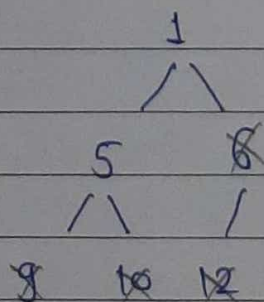 1
5 6
9 10 12